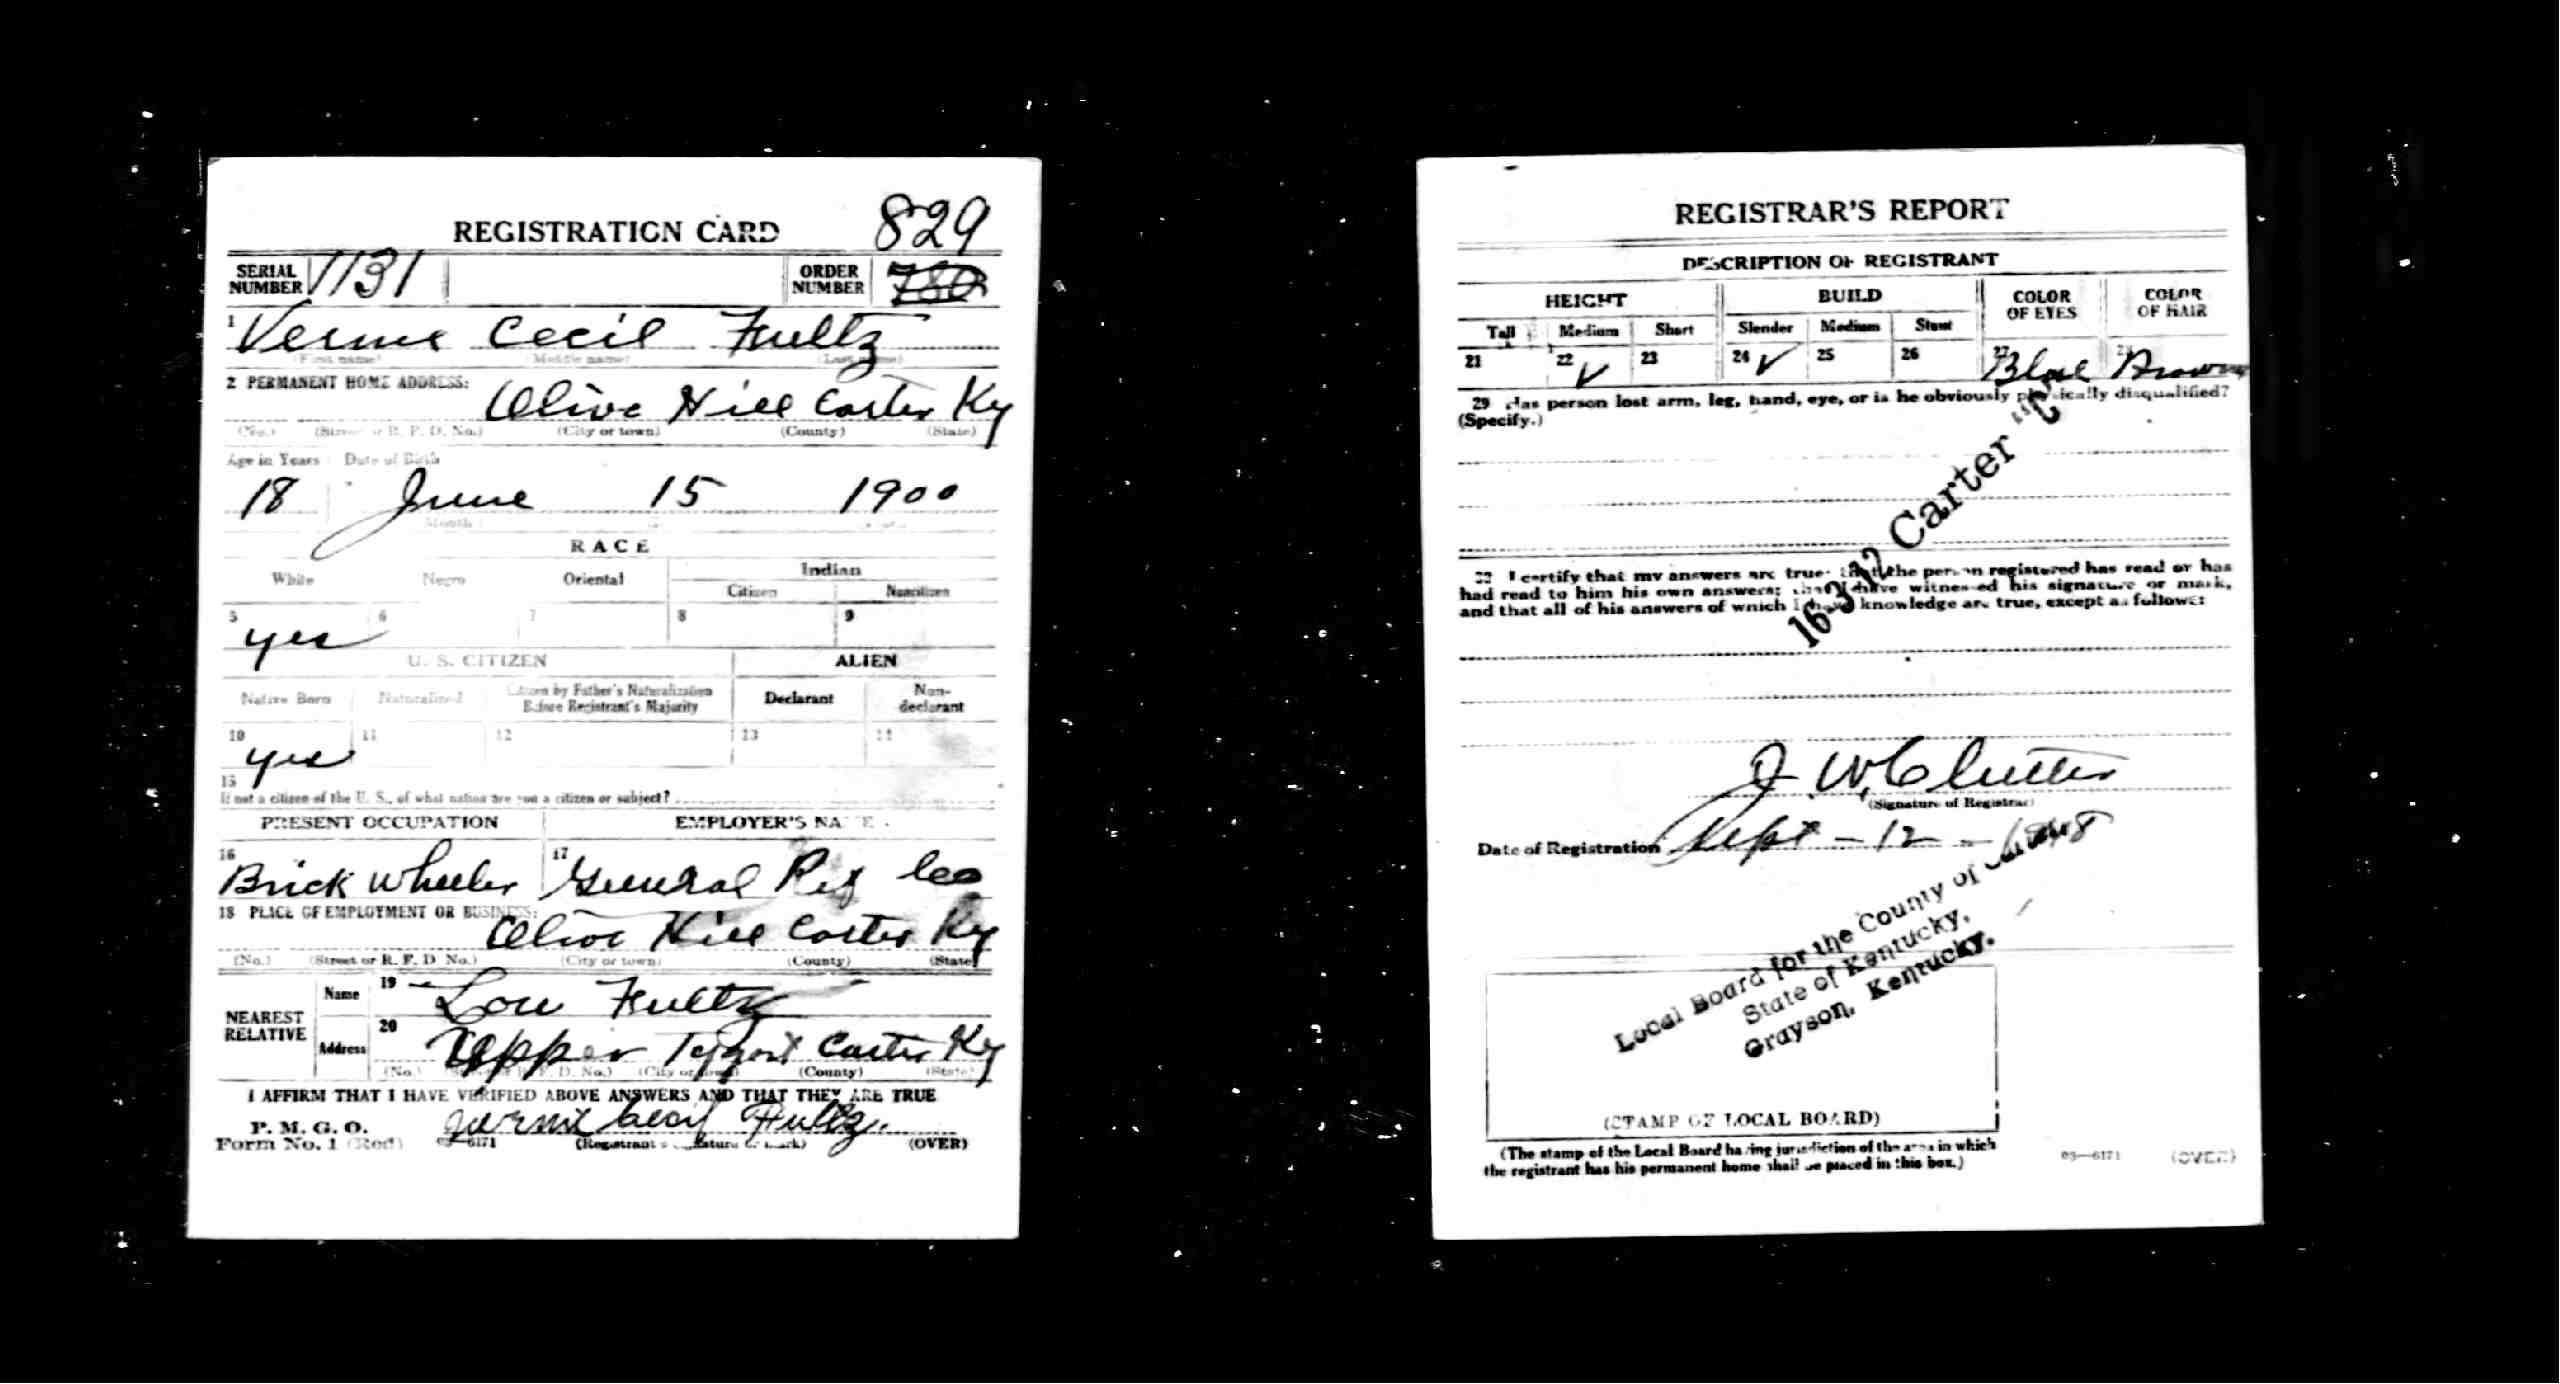 REGISTRATION CARD 829
SERIAL NUMBER 1131 ORDER NUMBER 780
1 Vernie Cecil Fultz
(First name) (Middle name) (Last name)
2 PERMANENT HOME ADDRESS:
Olive Hill Carter Ky
(No.) (Street or R. F. D. No.) (City or town) (County) (State)
Age in Years Date of Birth
18 June 15 1900
(Month)
RACE
White Negro Oriental Indian
Citizen Noncitizen
5 6 7 8 9
yes
U. S. CITIZEN ALIEN
Native Born Naturalized Citizen by Father's Naturalization Before Registrant's Majority Declarant Non-declarant
10 11 12 13 14
yes
15
If not a citizen of the U. S., of what nation are you a citizen or subject?
PRESENT OCCUPATION EMPLOYER'S NAME
16 Brick Wheeler 17 General Ref Co
18 PLACE OF EMPLOYMENT OR BUSINESS:
Olive Hill Carter Ky
(No.) (Street or R. F. D. No.) (City or town) (County) (State)
NEAREST RELATIVE
Name 19 Lou Fultz
Address 20 Upper Tygart Carter Ky
(No.) (Street or R. F. D. No.) (City or town) (County) (State)
I AFFIRM THAT I HAVE VERIFIED ABOVE ANSWERS AND THAT THEY ARE TRUE
P. M. G. O.
Form No. 1 (Red) 03—6171 Vernie Cecil Fultz
(Registrant's signature or mark) (OVER)
REGISTRAR'S REPORT
DESCRIPTION OF REGISTRANT
HEIGHT BUILD COLOR OF EYES COLOR OF HAIR
Tall Medium Short Slender Medium Stout
21 22 ✓ 23 24 ✓ 25 26 27 Blue 28 Brown
29 Has person lost arm, leg, hand, eye, or is he obviously physically disqualified?
(Specify.)
16-3-12 Carter "C"
30 I certify that my answers are true; that the person registered has read or has
had read to him his own answers; that I have witnessed his signature or mark,
and that all of his answers of which I have knowledge are true, except as follows:
J. W. Clutter
(Signature of Registrar)
Date of Registration Sept - 12 - 1918
Local Board for the County of Carter
State of Kentucky,
Grayson, Kentucky.
(STAMP OF LOCAL BOARD)
(The stamp of the Local Board having jurisdiction of the area in which
the registrant has his permanent home shall be placed in this box.)
03—6171 (OVER)